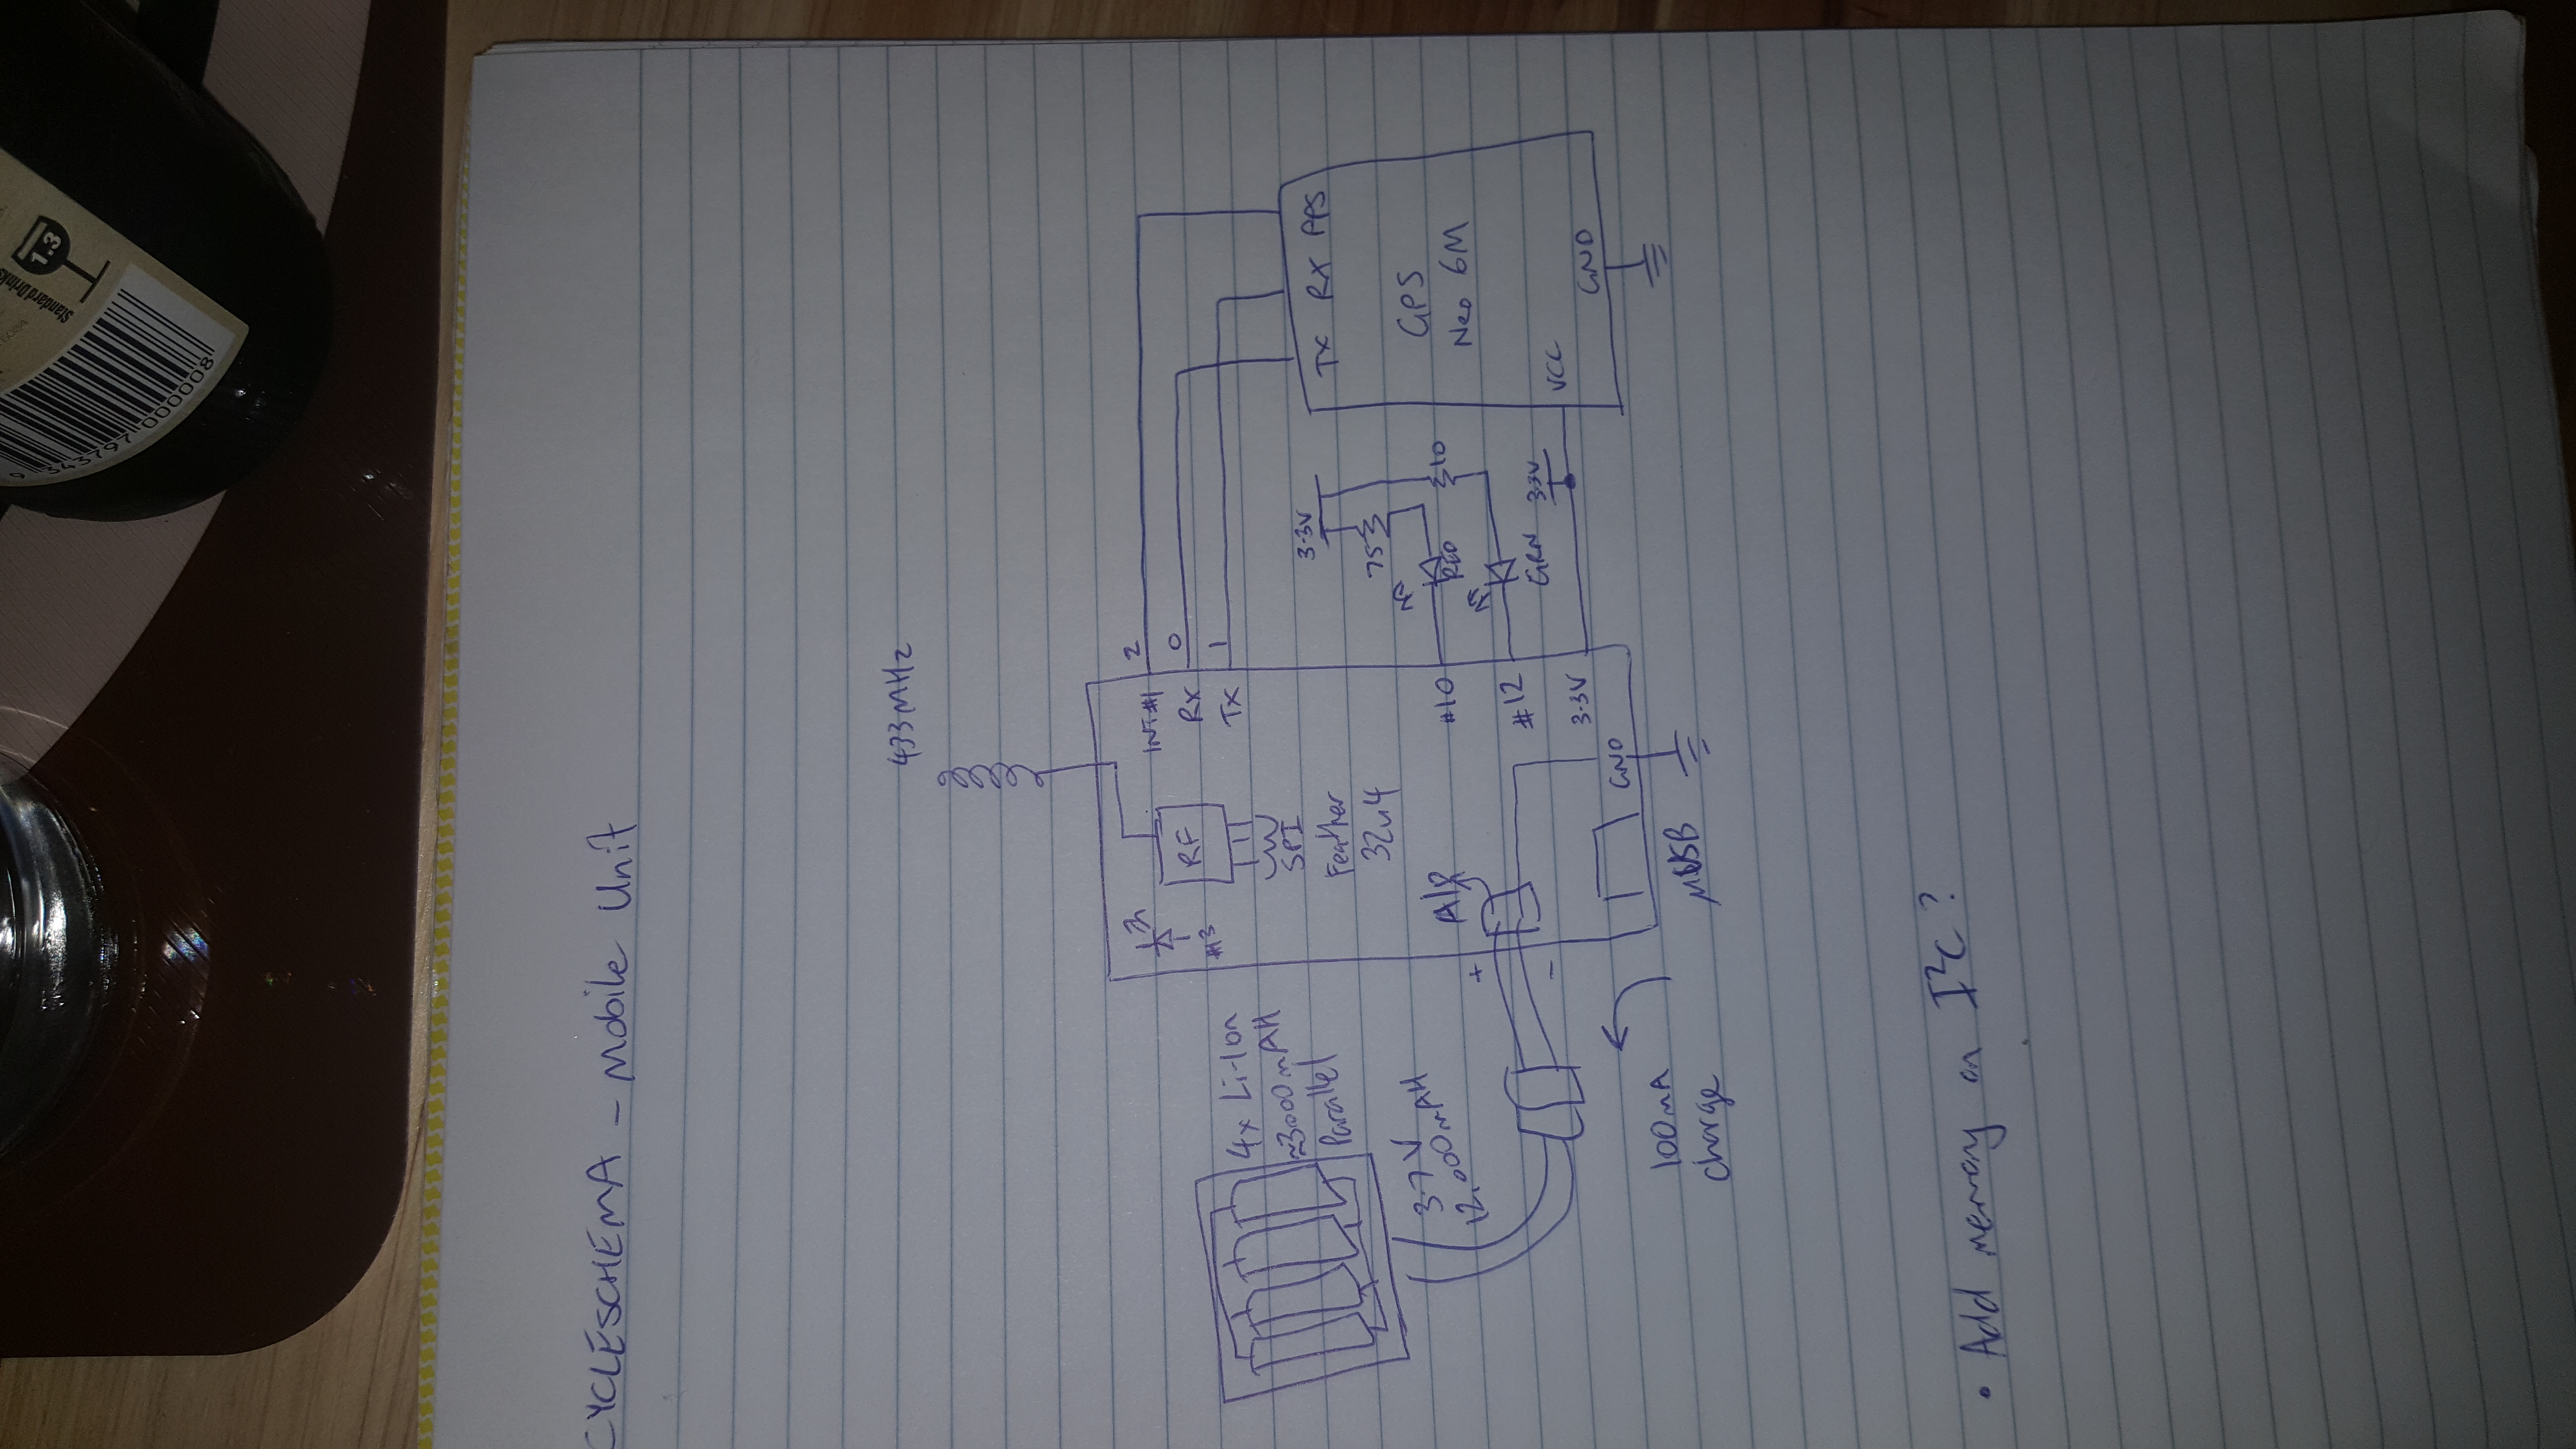 Standard Drinks
1.3
9 343797 000008
CYCLESCHEMA - Mobile Unit
433MHz
#3
RF
SPI
Feather
32u4
INT#1
2
Rx
0
TX
1
4x Li-Ion
≈3000mAH
Parallel
3.7V
12,000mAH
+
-
#10
#12
3.3V
GND
µUSB
100mA
charge
3.3V
75
RED
10
GRN
3.3V
TX RX PPS
GPS
Neo 6M
VCC
GND
• Add memory on I²C?